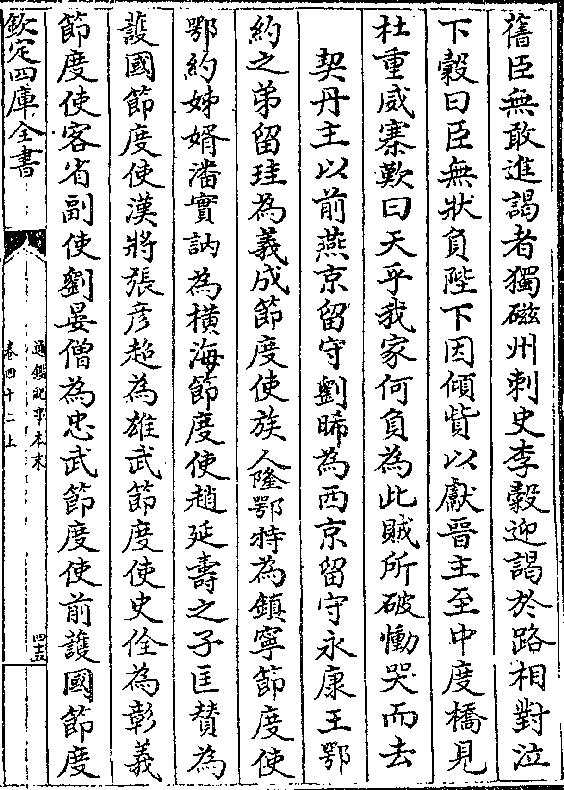 舊臣無敢進謁者獨磁州刺史李穀迎謁於路相對泣
下穀曰臣無狀負陛下因傾貲以獻晉主至中度橋見
杜重威寨歎曰天乎我家何負為此賊所破慟哭而去
契丹主以前燕京留守劉晞為西京留守永康王鄂
約之弟留珪為義成節度使族人隆鄂特為鎮寧節度使
鄂約姊婿潘實訥為橫海節度使趙延壽之子匡贊為
護國節度使漢將張彥超為雄武節度使史佺為彰義
節度使客省副使劉晏僧為忠武節度使前護國節度
欽定四庫全書
通鑑紀事本末
卷四十二上
四十五